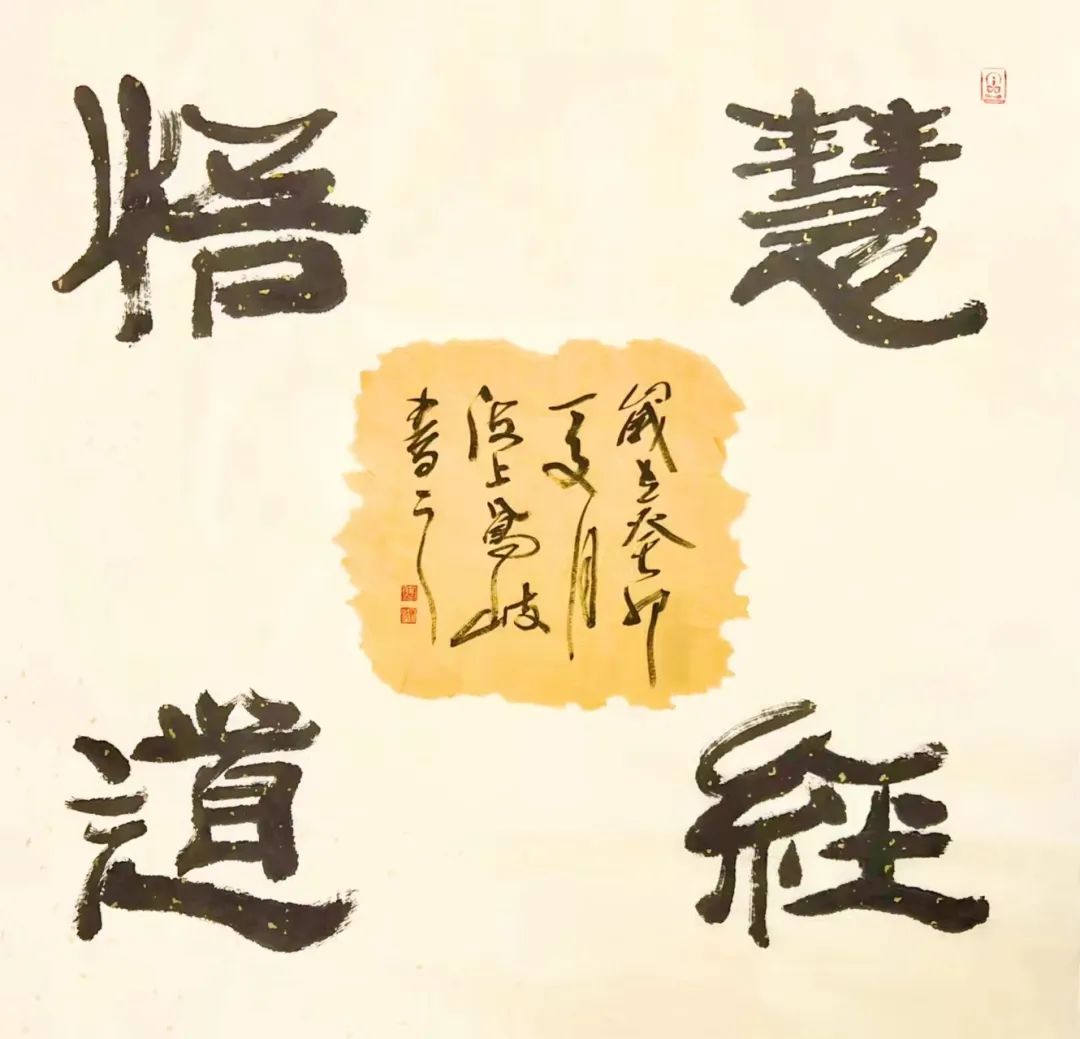 慧經
悟道
歲在癸卯
夏月
海上岐
書之